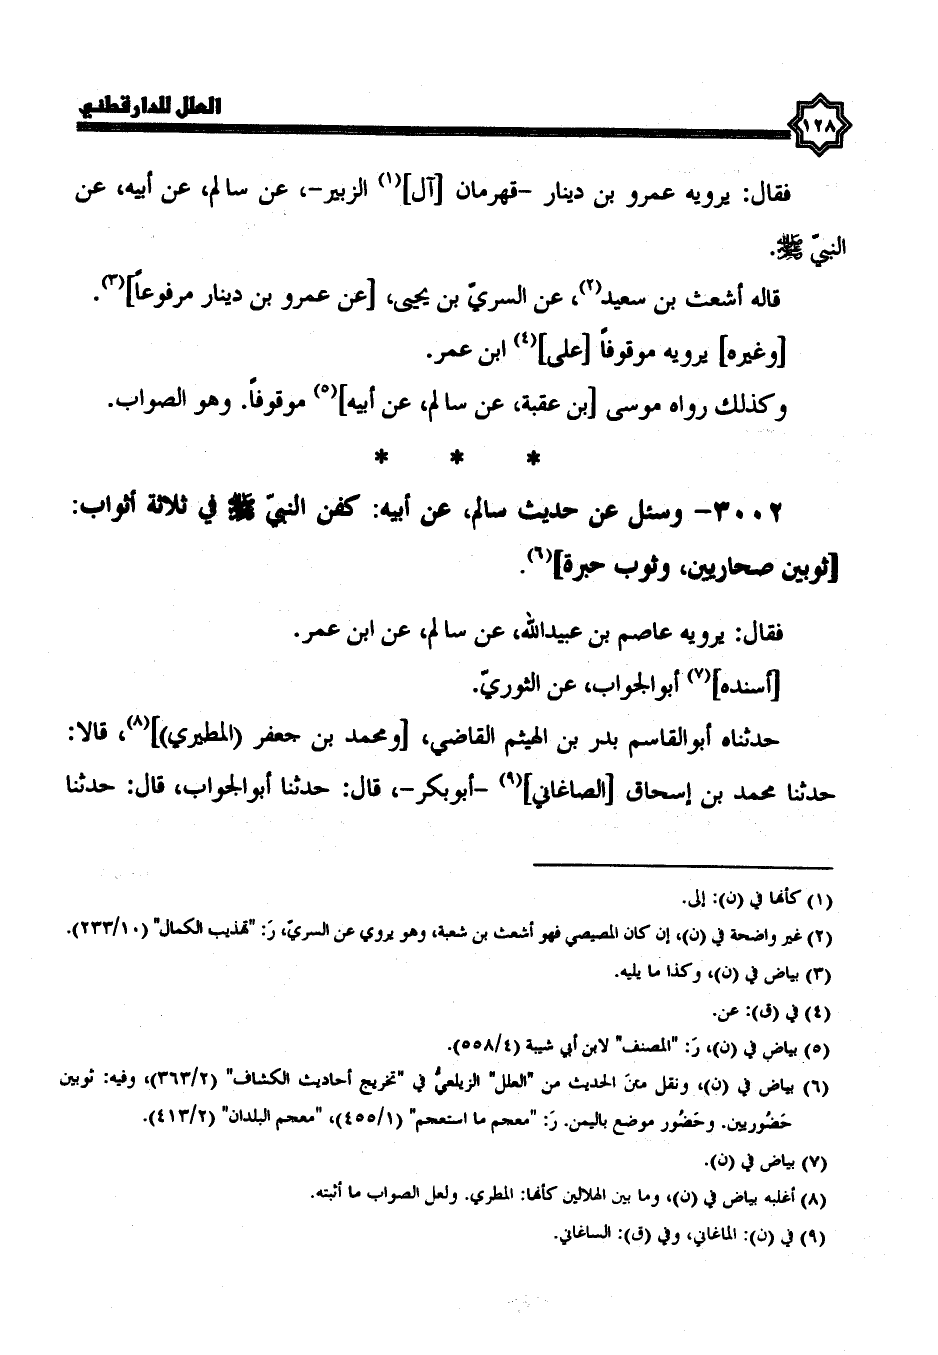 ١٢٨
العلل للدارقطني
فقال: يرويه عمرو بن دينار –قهرمان [آل](١) الزبير–، عن سالم، عن أبيه، عن
النبيّ ﷺ.
قاله أشعث بن سعيد(٢)، عن السريّ بن يحيى، [عن عمرو بن دينار مرفوعاً](٣).
[وغيره] يرويه موقوفاً [على](٤) ابن عمر.
وكذلك رواه موسى [بن عقبة، عن سالم، عن أبيه](٥) موقوفاً. وهو الصواب.
* * *
٣٠٠٢– وسئل عن حديث سالم، عن أبيه: كفن النبيّ ﷺ في ثلاثة أثواب:
[ثوبين صحاريين، وثوب حبرة](٦).
فقال: يرويه عاصم بن عبيدالله، عن سالم، عن ابن عمر.
[أسنده](٧) أبوالجواب، عن الثوريّ.
حدثناه أبوالقاسم بدر بن الهيثم القاضي، [ومحمد بن جعفر (المطيري)](٨)، قالا:
حدثنا محمد بن إسحاق [الصاغاني](٩) –أبوبكر–، قال: حدثنا أبوالجواب، قال: حدثنا
(١) كأنها في (ن): إلى.
(٢) غير واضحة في (ن)، إن كان المصيصي فهو أشعث بن شعبة، وهو يروي عن السريّ، رَ: "تهذيب الكمال" (٢٣٣/١٠).
(٣) بياض في (ن)، وكذا ما يليه.
(٤) في (ق): عن.
(٥) بياض في (ن)، رَ: "المصنف" لابن أبي شيبة (٥٥٨/٤).
(٦) بياض في (ن)، ونقل متنَ الحديث من "العلل" الزيلعيُّ في "تخريج أحاديث الكشاف" (٣٦٣/٢)، وفيه: ثوبين
حَضُوريين. وحَضُور موضع باليمن. رَ: "معجم ما استعجم" (٤٥٥/١)، "معجم البلدان" (٤١٣/٢).
(٧) بياض في (ن).
(٨) أغلبه بياض في (ن)، وما بين الهلالين كأنها: المطري. ولعل الصواب ما أثبته.
(٩) في (ن): الماغاني، وفي (ق): الساغاني.